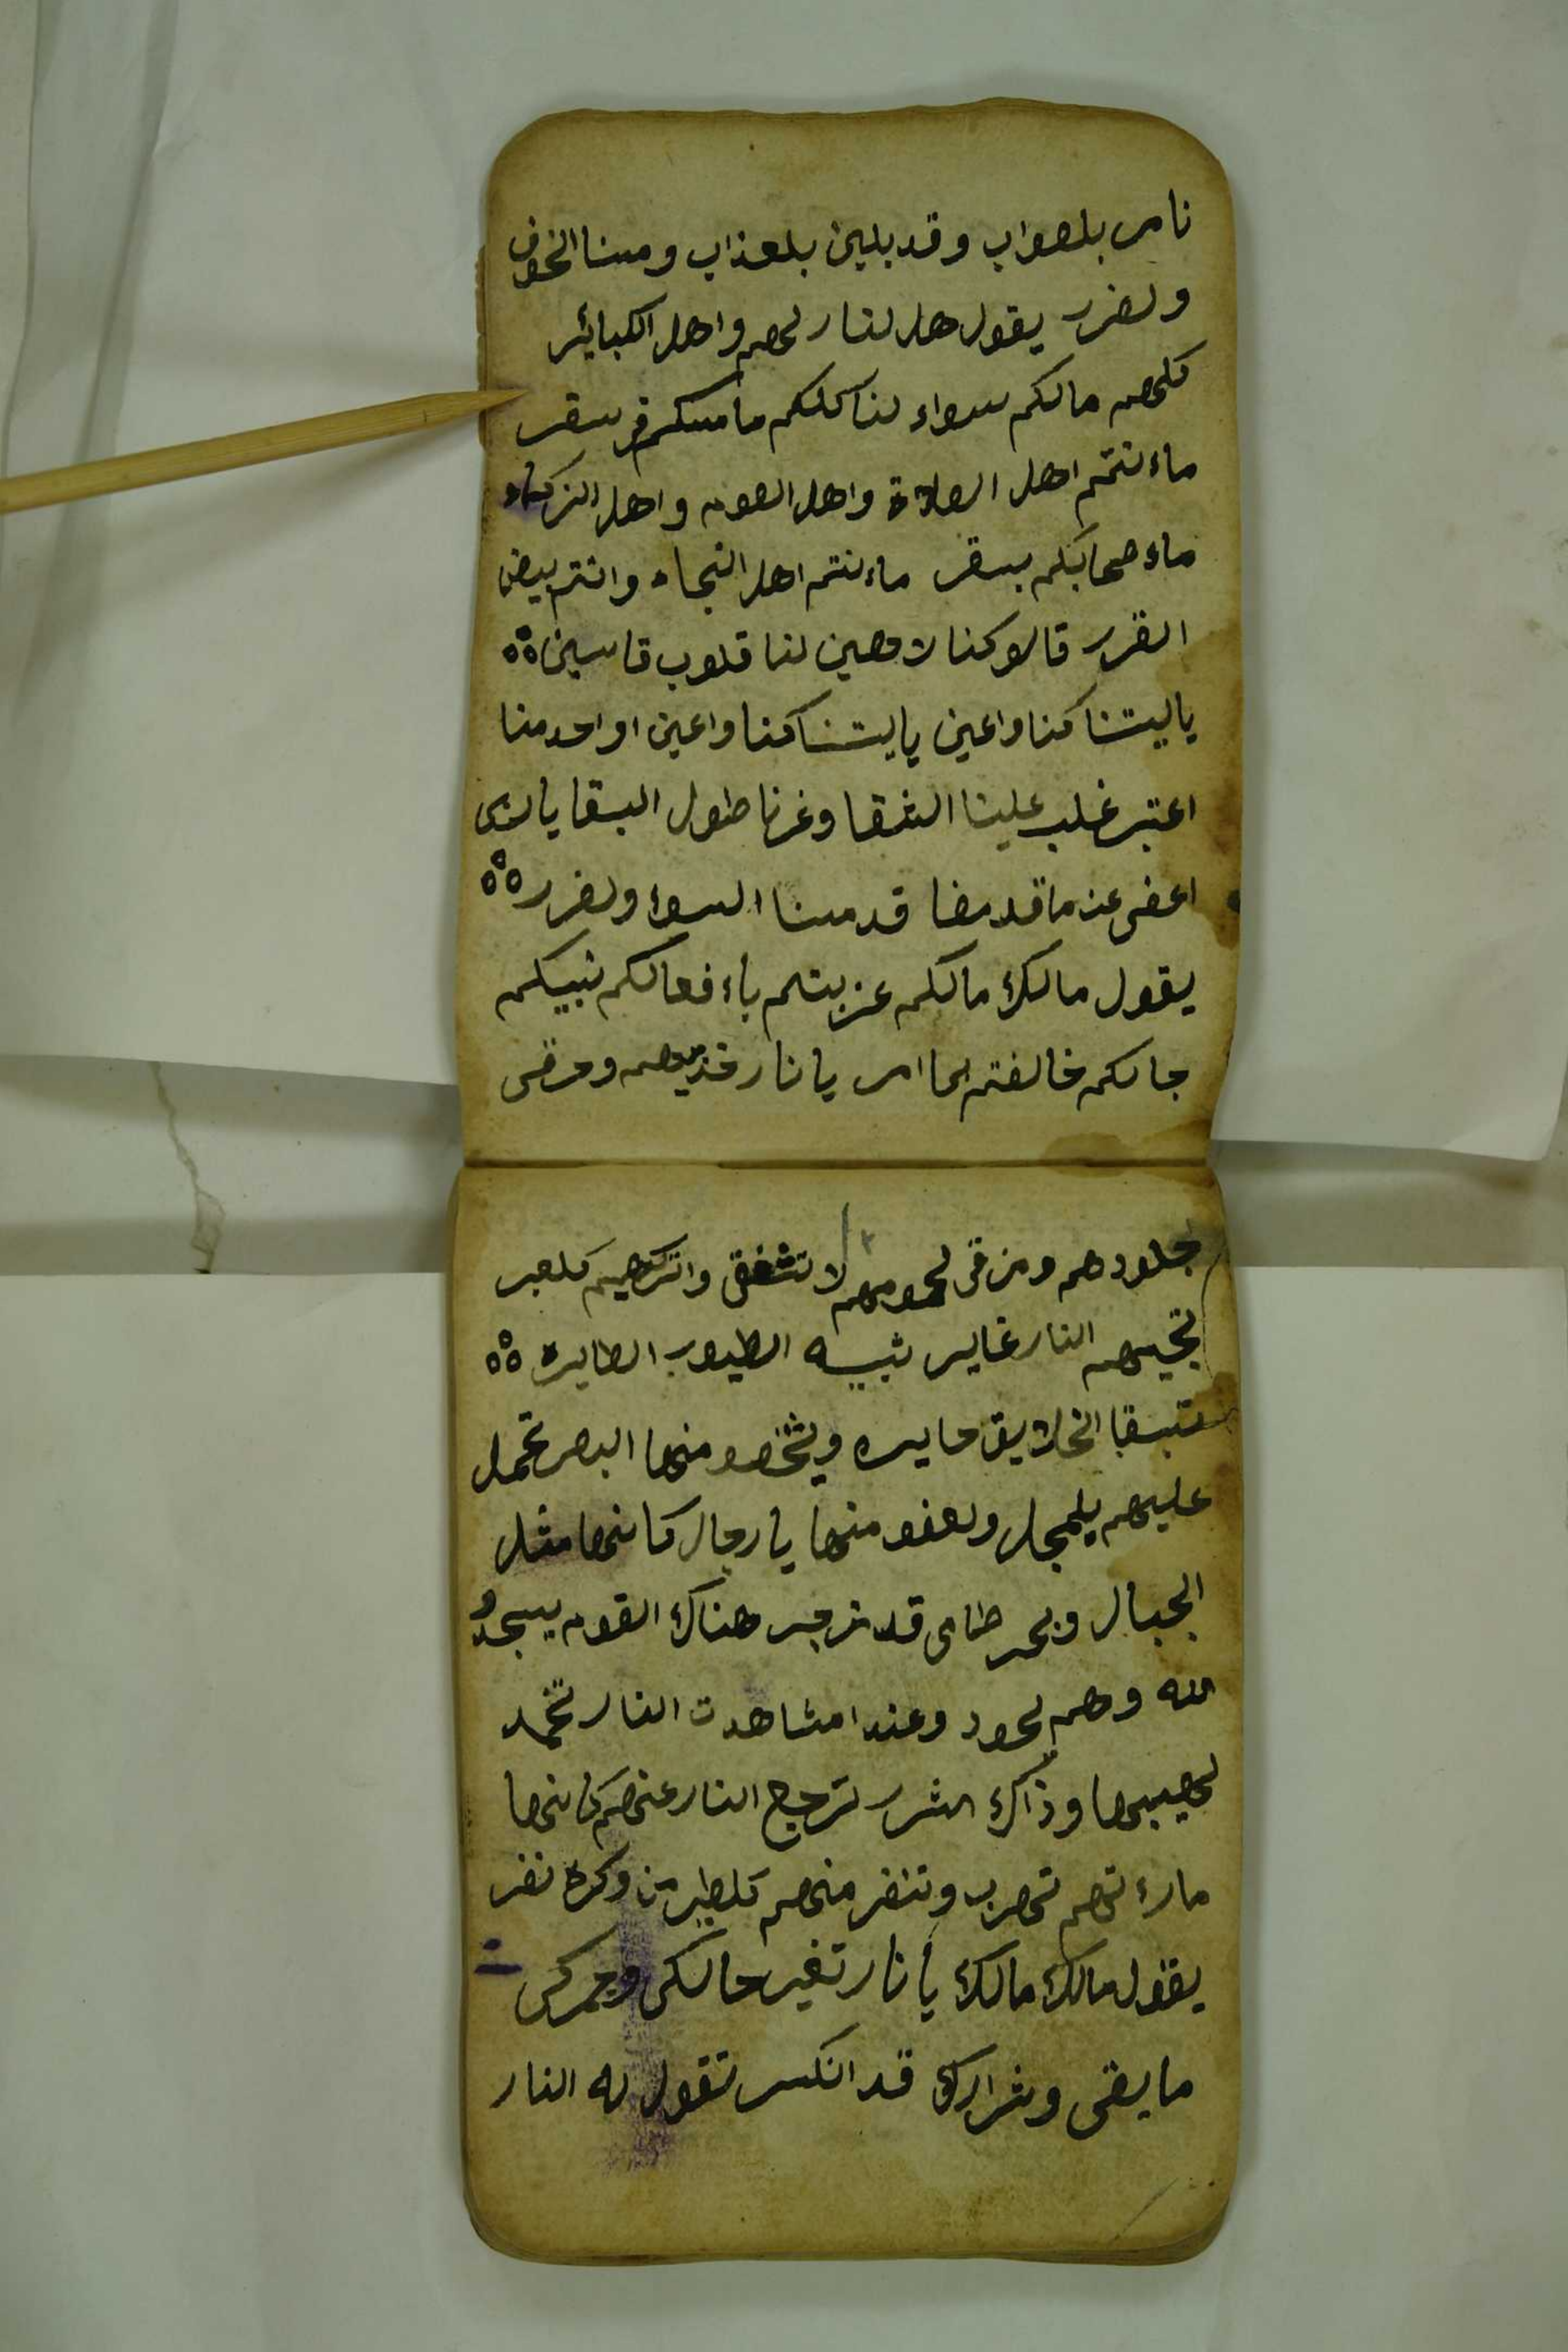 نامر بلصواب وقد بلين بلعذاب ومسنا الخوف
ولضرر يقول هل لنار لهم واهل الكبائر
كلهم مالكم سواء لنا كلكم ماسلكم في سقر
ماءنتم اهل الصلاة واهل الصوم واهل الزكاه
ماء صحابكم بسقر ماءنتم اهل النجاه وانتم بيض
الغرر قالو كنا لاهين لنا قلوب قاسين
ياليتنا كنا واعين ياليتنا كنا واعين او احد منا
اعتبر غلب علينا الشقا وغرنا طول البقا يا
اعفى عن ما قد مضا قد مسنا السواء ولضرر
يقول مالك مالكم عزبتم باءفعالكم نبيكم
جاكم خالفتم لما امر يا نار خذيهم وحرقى
جلودهم ومزقى لحومهم لا تشفقى واتركيهم كلعبر
تجيهم النار غايره شبيه الطيور الطايره
تبقا الخلايق حايره ويشخص منها البصر تحمل
عليهم بلعجل ولعفو منها يا رجال كانها مثل
الجبال وبحر طامى قد زجر هناك القوم يسجدو
لله وهم لحود وعندا مشاهدت النار تخمد
لهيبها وذاك الشرر لترجع النار عنهم كانها
مارءتهم تهرب وتنفر منهم كلطير من وكره نفر
يقول مالك مالك يا نار تغير حالكى وجمركى
ما بقى وشرارك قد انكسر تقول له النار